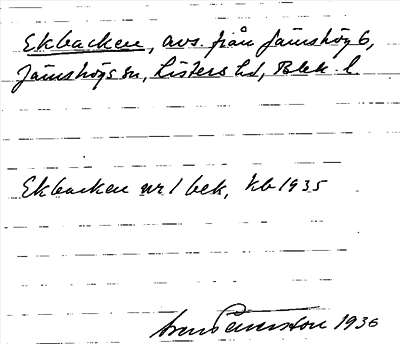 Ekbacken, avs. från Jämshög 6,
Jämshögs sn, Listers hd, Blek. l.
Ekbacken nr 1 bek, kb 1935
1936